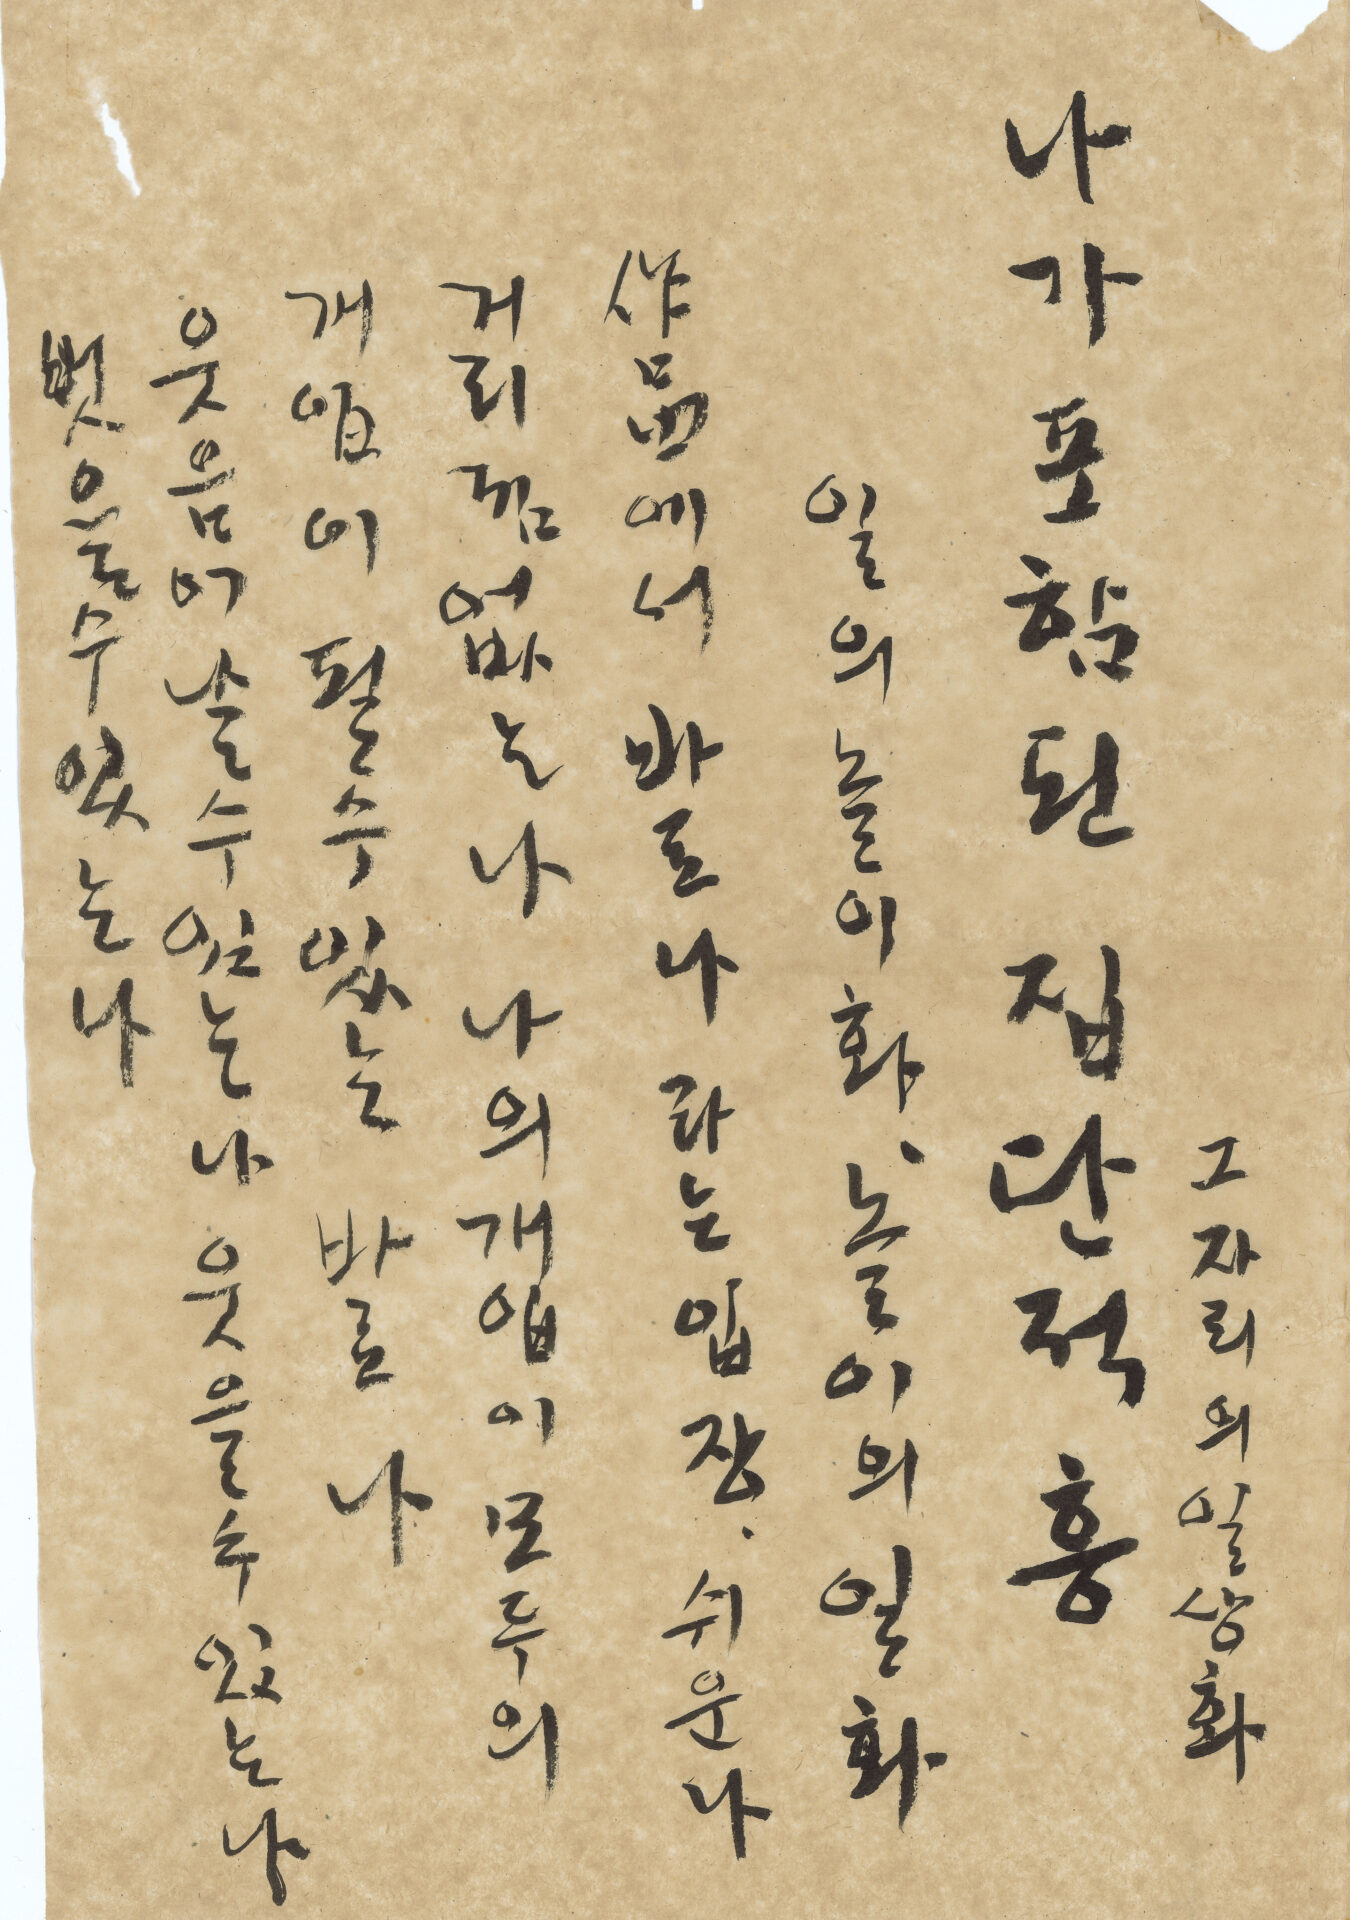 그 자리의 일상화
나가 포함된 집단적 흥
일의 놀이화, 놀이의 일화
作品에서 바로 나 라는 입장, 쉬운 나
거리낌 없는 나 나의 개입이 모두의
개입이 될 수 있는 바로 나
웃음이 날 수 있는 나 웃을 수 있는 나
벗을 수 있는 나